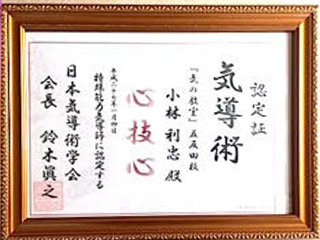 認定証
気導術
「気の教室」五反田校
小林利忠殿
心技心
平成二十七年一月四日
特殊能力気導師に認定する
日本気導術学会
会長 鈴木眞之